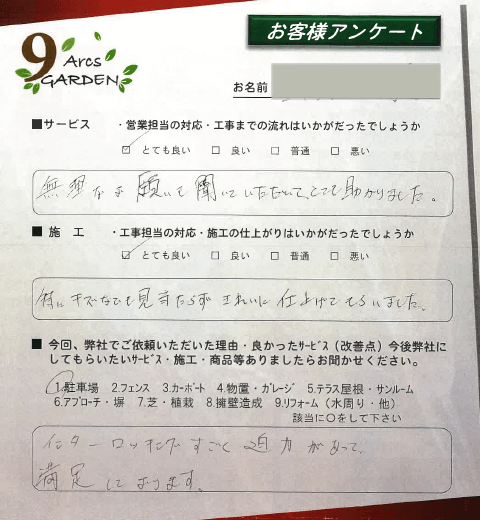 お客様アンケート
9 Arcs
GARDEN
お名前
■サービス ・営業担当の対応・工事までの流れはいかがだったでしょうか
☑ とても良い □ 良い □ 普通 □ 悪い
無理なお願いも聞いていただいて、とても助かりました。
■施 工 ・工事担当の対応・施工の仕上がりはいかがだったでしょうか
☑ とても良い □ 良い □ 普通 □ 悪い
特にキズなども見当たらずきれいに仕上げてもらいました。
■ 今回、弊社でご依頼いただいた理由・良かったサービス（改善点）今後弊社に
してもらいたいサービス・施工・商品等ありましたらお聞かせください。
1.駐車場 2.フェンス 3.カーポート 4.物置・ガレージ 5.テラス屋根・サンルーム
6.アプローチ・塀 7.芝・植栽 8.擁壁造成 9.リフォーム（水周り・他）
該当に○をして下さい
インターロッキングすごく迫力があって、
満足しております。